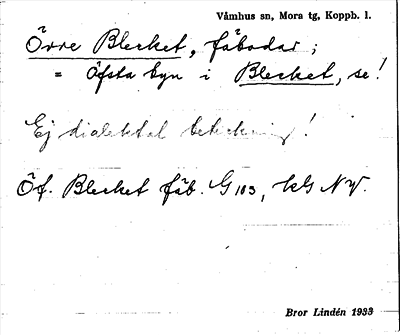 Våmhus sn, Mora tg, Koppb. l.
Övre Blecket, fäbodar;
= Öfsta byn i Blecket, se!
Ej dialektal beteckning!
Öf. Blecket fäb. G 103, kG NV.
Bror Lindén 1933